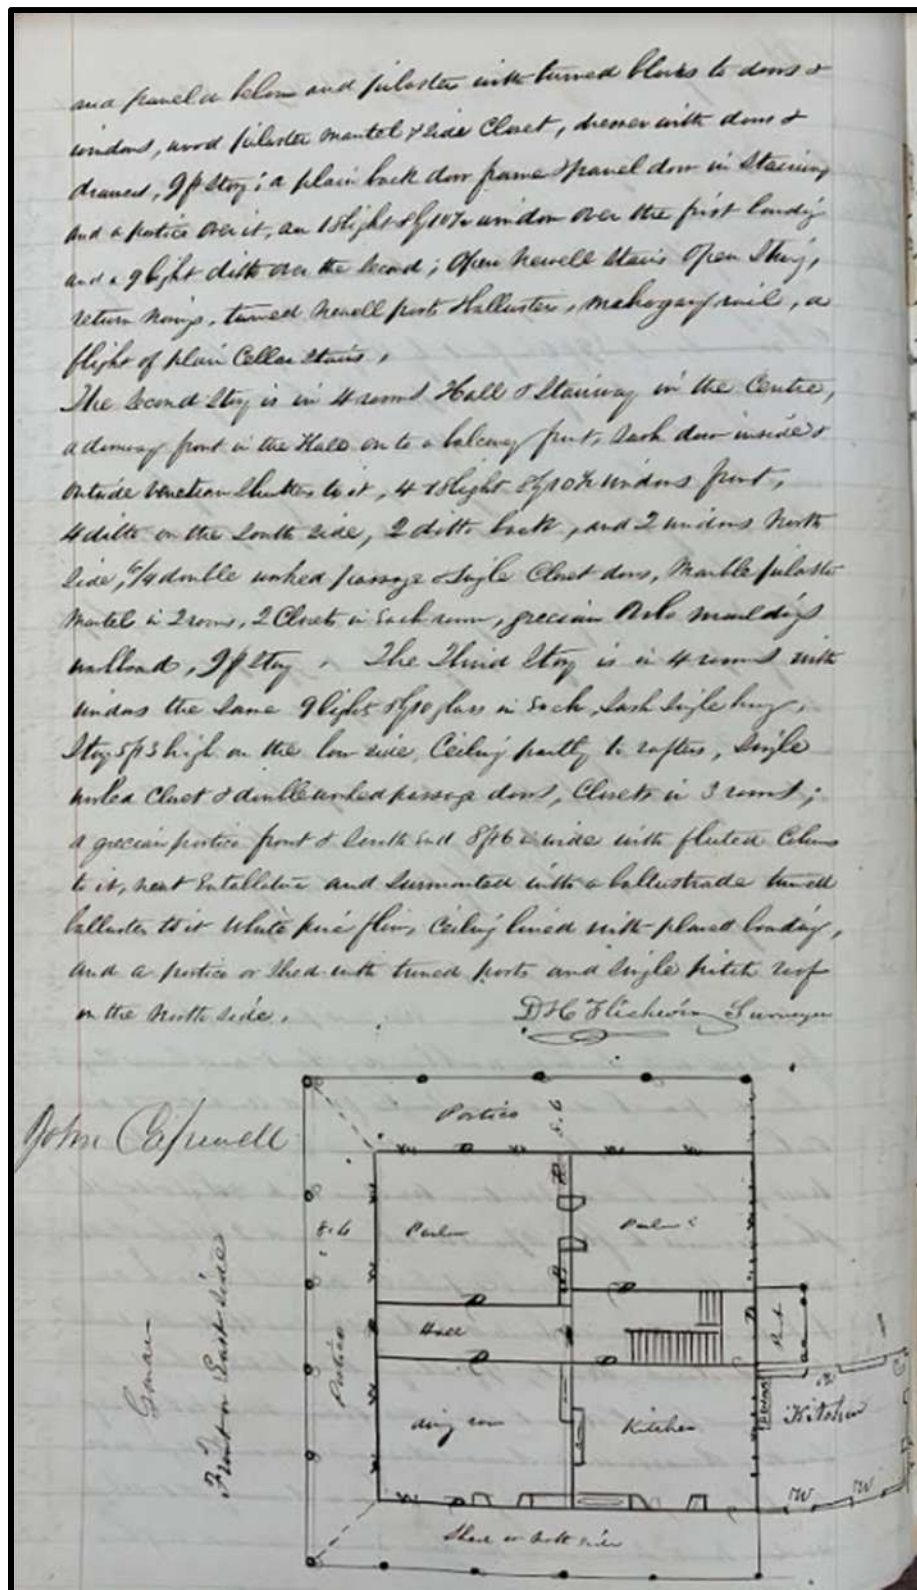 and panels below and pilasters with turned blocks to doors &
windows, wood pilaster mantel & side Closet, dresser with doors &
drawers, 9 ft Story; a plain back door frame & panel door in Stairway
and a portico over it, an 18 light 8 by 10 window over the first landing
and a 9 light ditto over the second; Open Newell Stairs Open String,
return nosings, turned newell posts & ballusters, mahogany rail, a
flight of plain Cellar Stairs,
The Second Story is in 4 rooms Hall & Stairway in the Centre,
a doorway front in the Hall on to a balcony front, Sash door inside &
outside venetian Shutters to it, 4 18 light 8 by 10 windows front,
4 ditto on the South side, 2 ditto back, and 2 windows North
side, 6/9 double worked passage & Single Closet doors, Marble pilaster
Mantel in 2 rooms, 2 Closets in Each room, grecian mouldings
washboard, 9 ft Story. The Third Story is in 4 rooms with
windows the same 9 lights 8 by 10 glass in Each, Sash Single hung,
Story 5 ft 3 high on the low side, Ceiling partly to rafters, Single
worked Closet & double worked passage doors, Closets in 3 rooms;
a grecian portico front & South End 8 ft 6 in wide with fluted Columns
to it, neat Entablature and Surmounted with a ballustrade turned
ballusters to it White pine floor, Ceiling lined with planed boarding,
and a portico or Shed with turned posts and Single pitch roof
on the North side.
D H Surveyor
John Capewell
Portico
8.6
Parlor
Parlor
8.6
Portico
Hall
Front on East side
dining room
Kitchen
Kitchen
W W
Shed on North side